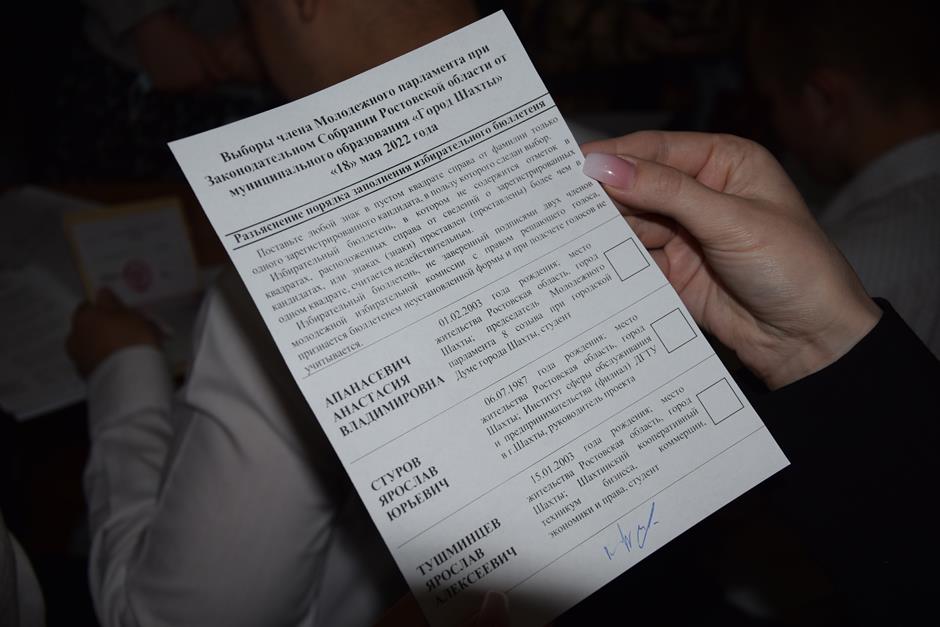 Выборы члена Молодежного парламента при
Законодательном Собрании Ростовской области от
муниципального образования «Город Шахты»
«18» мая 2022 года
Разъяснение порядка заполнения избирательного бюллетеня
Поставьте любой знак в пустом квадрате справа от фамилии только
одного зарегистрированного кандидата, в пользу которого сделан выбор.
Избирательный бюллетень, в котором не содержится отметок в
квадратах, расположенных справа от сведений о зарегистрированных
кандидатах, или знаки (знаки) проставлен (проставлены) более чем в
одном квадрате, считается недействительным.
Избирательный бюллетень, не заверенный подписями двух членов
молодежной избирательной комиссии с правом решающего голоса,
признается бюллетенем неустановленной формы и при подсчете голосов не
учитывается.
АПАНАСЕВИЧ
АНАСТАСИЯ
ВЛАДИМИРОВНА
01.02.2003 года рождения; место
жительства Ростовская область, город
Шахты; председатель Молодежного
парламента 8 созыва при городской
Думе города Шахты, студент
СТУРОВ
ЯРОСЛАВ
ЮРЬЕВИЧ
06.07.1987 года рождения; место
жительства Ростовская область, город
Шахты; Институт сферы обслуживания
и предпринимательства (филиал) ДГТУ
в г.Шахты, руководитель проекта
ТУШМИНЦЕВ
ЯРОСЛАВ
АЛЕКСЕЕВИЧ
15.01.2003 года рождения; место
жительства Ростовская область, город
Шахты; Шахтинский кооперативный
техникум бизнеса, коммерции,
экономики и права, студент